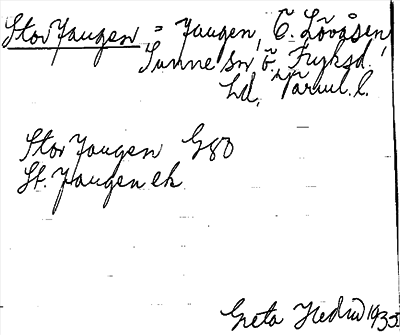 Stor Jangen = Jangen, Ö. Lövåsen,
Sunne sn Ö. Fryksd.
hd, Värml. l.
Stor Jangen G80
St. Jangen ek
Greta Hedin 1933